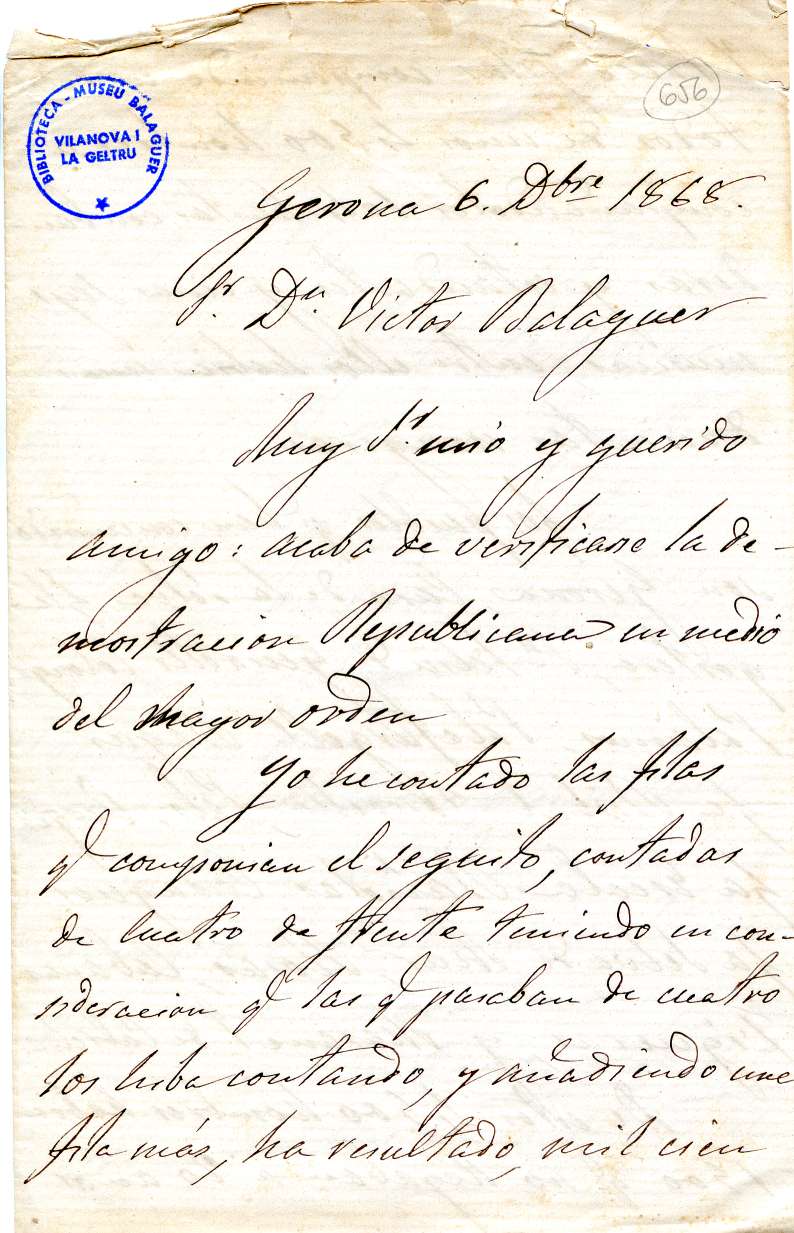 BIBLIOTECA - MUSEU BALAGUER
VILANOVA I
LA GELTRU
656
Gerona 6. Dbre 1868.
Sr. Dn Victor Balaguer
Muy Sr. mio y querido
amigo: acaba de verificarse la de-
mostracion Republicana en medio
del mayor orden
Yo he contado las filas
q componian el seguito, contadas
de cuatro de frente teniendo en con-
sideracion q las q pasaban de cuatro
los hiba contando, y añadiendo una
fila más, ha resultado, mil cien